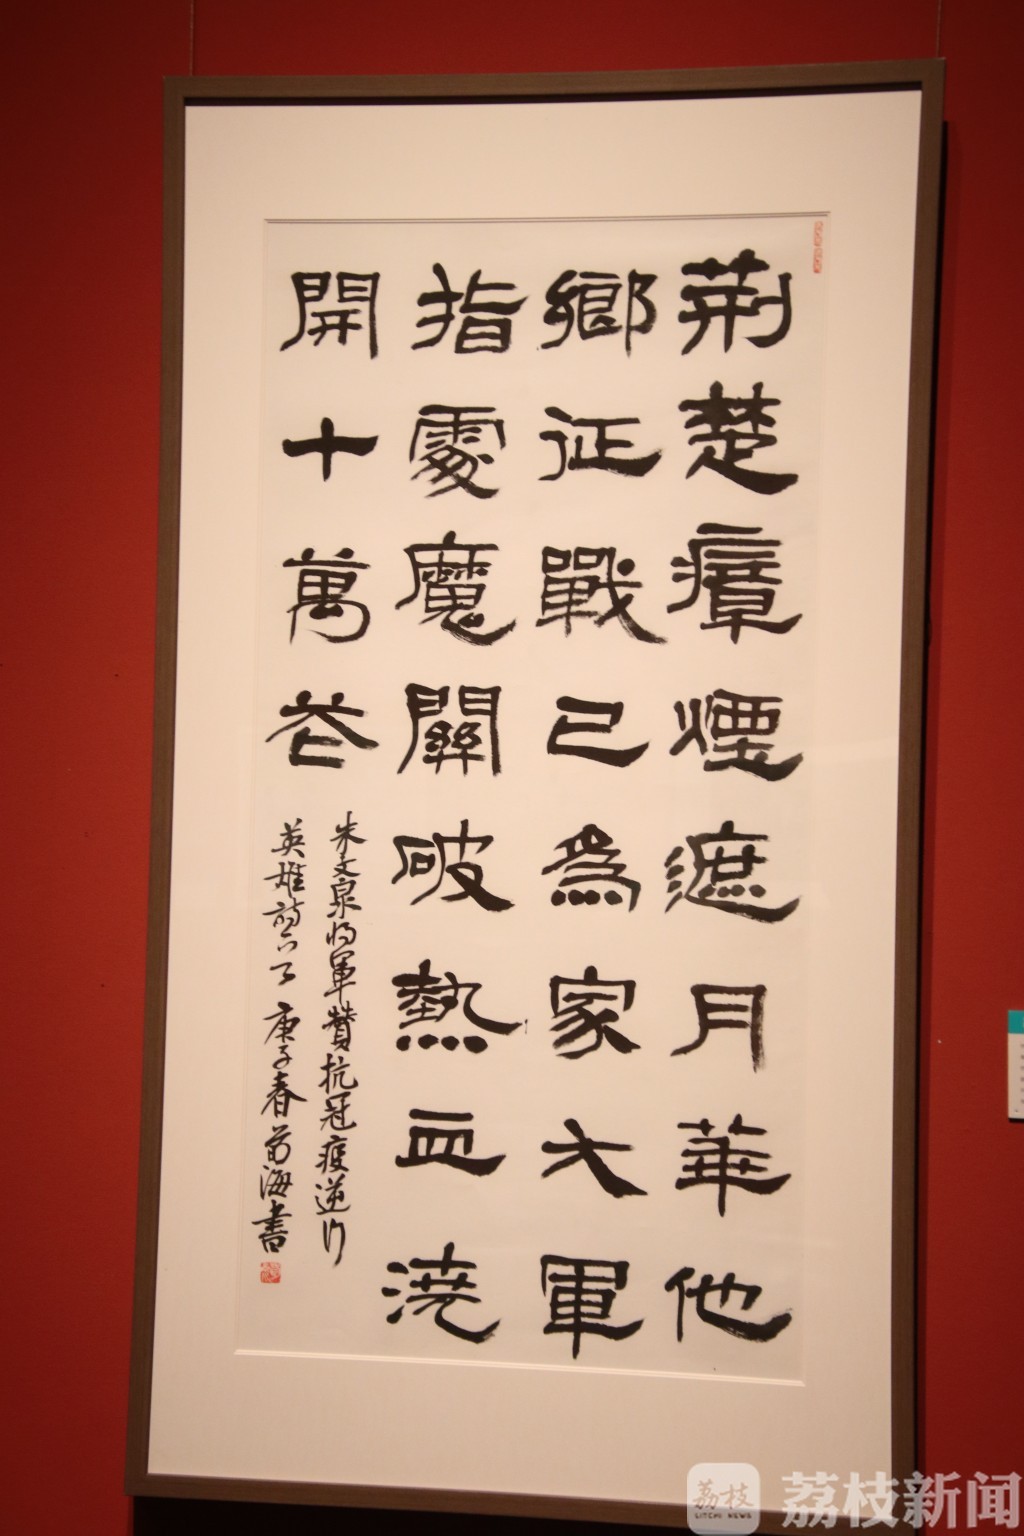 荆楚瘴煙遮月華他
鄉征戰已為家大軍
指處魔關破熱血澆
開十萬花
朱文泉將軍贊抗冠疫逆行
英雄詩一首 庚子春 海書
荔枝
LITCHI NEWS
荔枝新闻